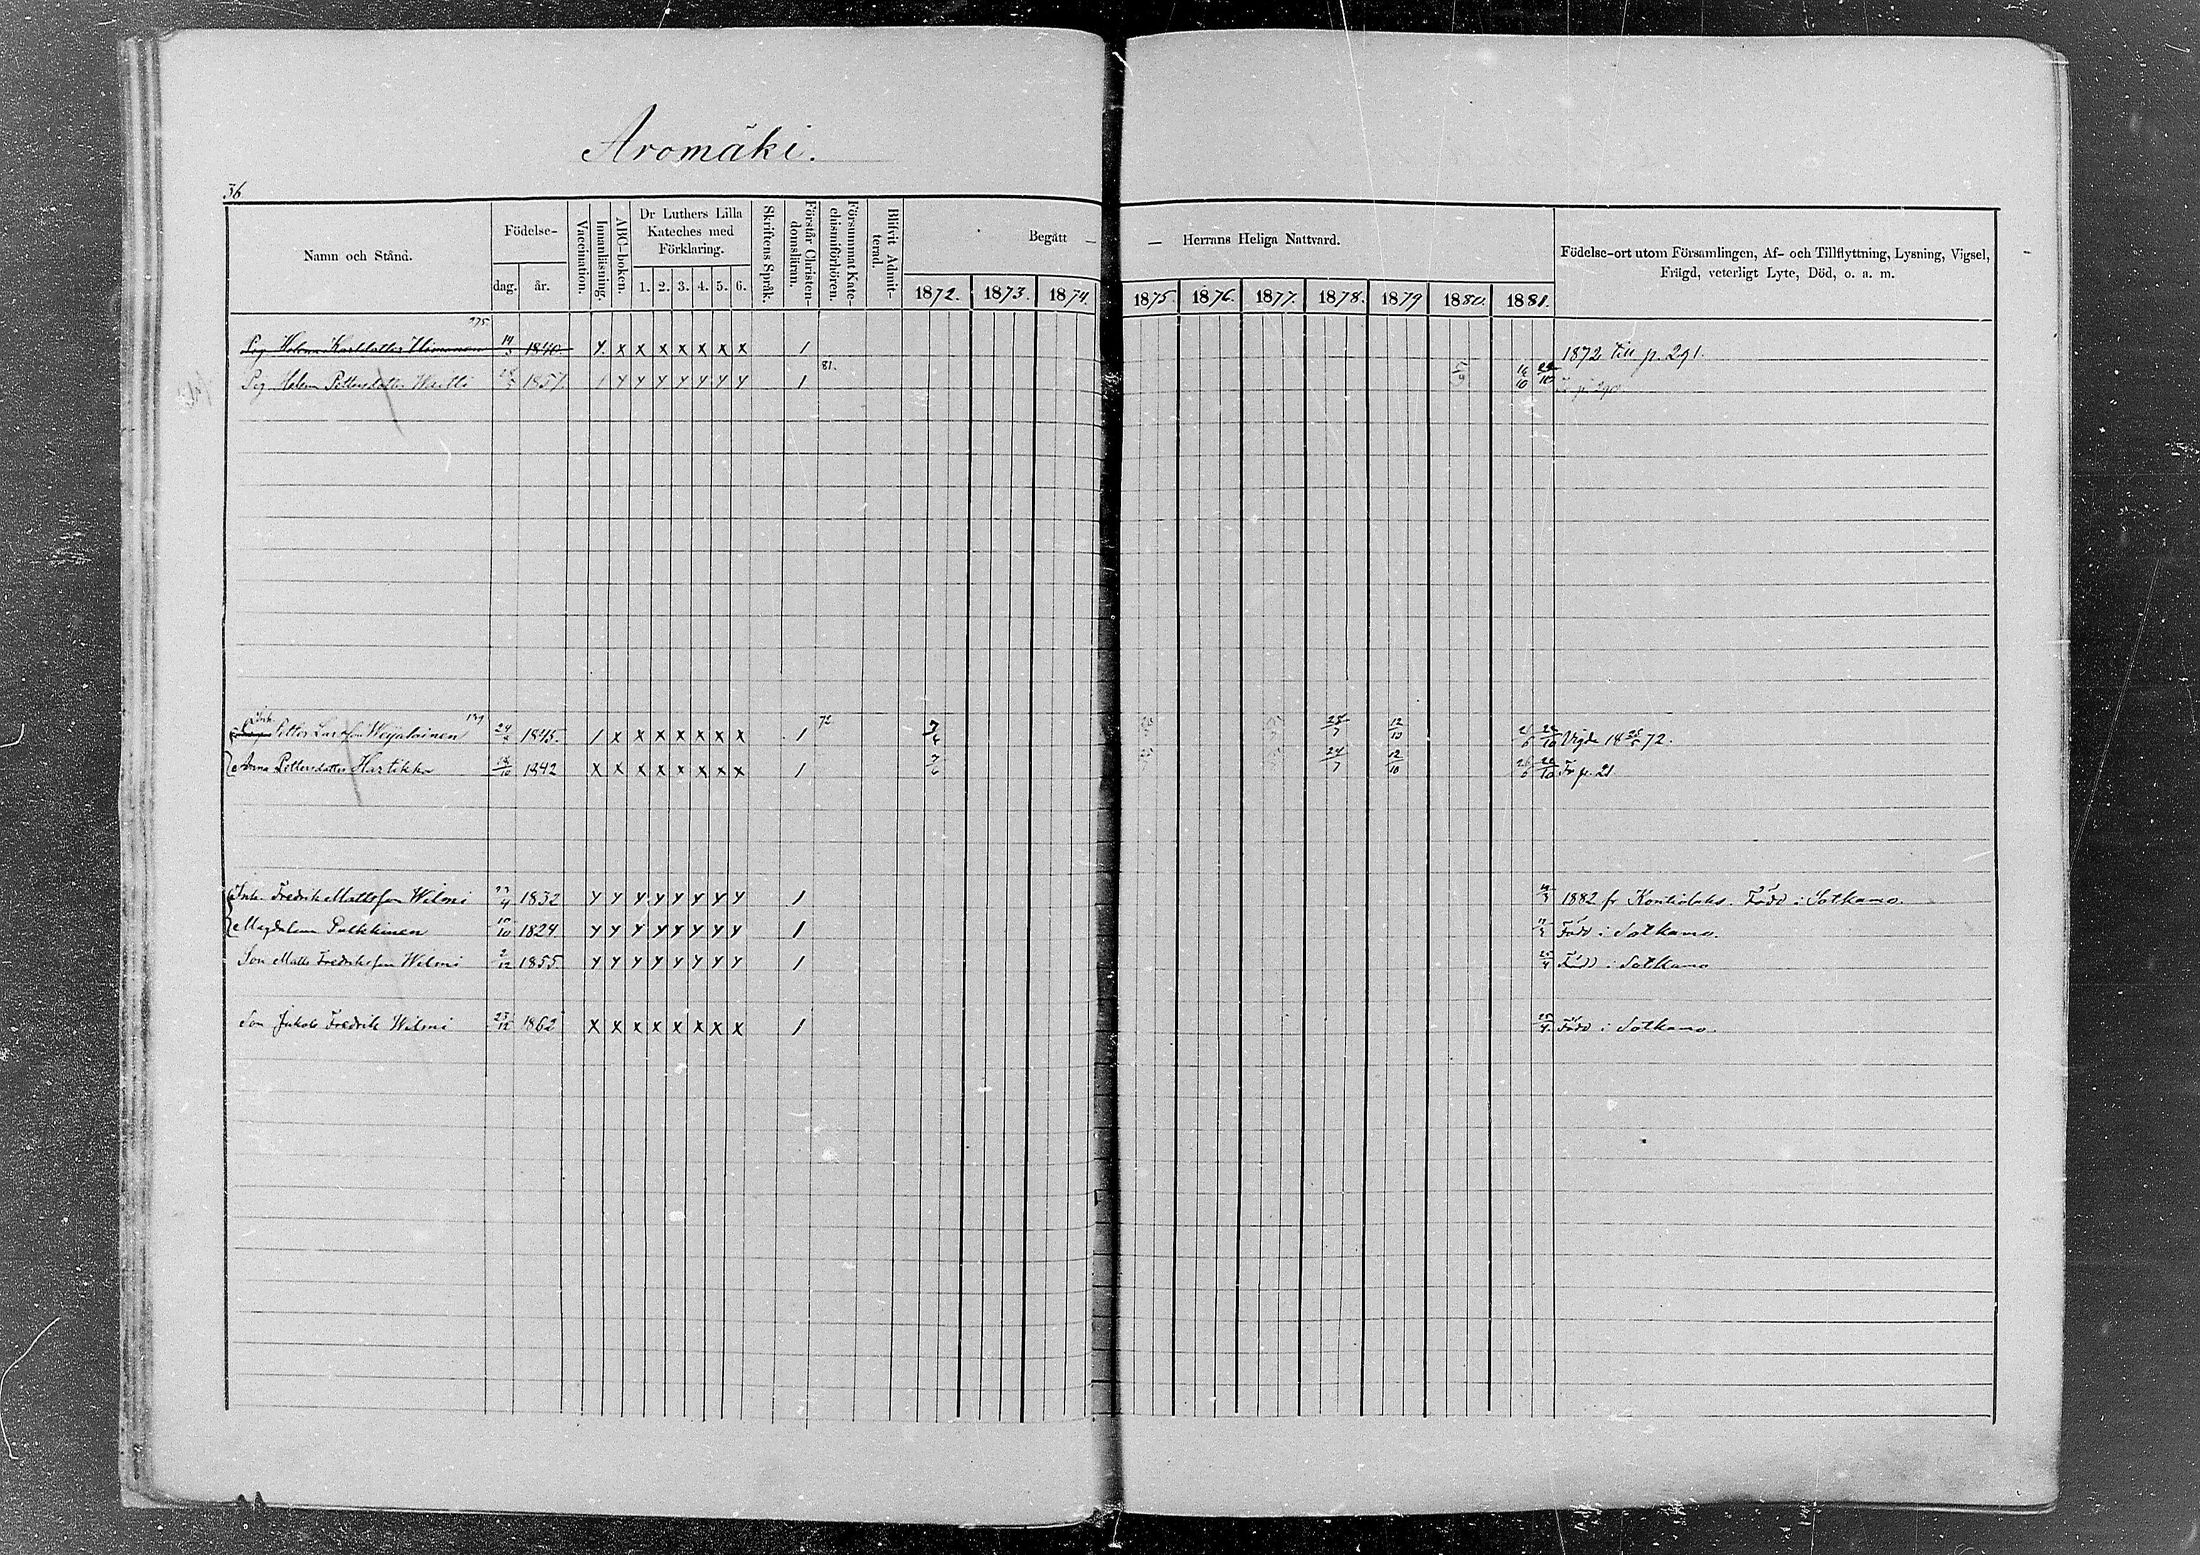 Aromäki.
36
Namn och Stånd.
Födelse-
dag.
år.
Vaccination.
Innanläsning.
ABC-boken.
Dr Luthers Lilla
Kateches med
Förklaring.
1. 2. 3. 4. 5. 6.
Skriftens Språk.
Förstår Christen-
domsläran.
Försummat Kate-
chismiförhören.
Blifvit Admit-
terad.
Begått — — Herrans Heliga Nattvard.
1872. 1873. 1874. 1875. 1876. 1877. 1878. 1879 1880. 1881.
Födelse-ort utom Församlingen, Af- och Tillflyttning, Lysning, Vigsel,
Frägd, veterligt Lyte, Död, o. a. m.
Pig Helena Karlsdotter 14/3 1840. x x x x x x x 1 1872 till p. 291.
81.
Pig Helena Pettersdotter 1857. y y y y y y y 1 16/10
72
Petter Weijalainen 1845. 1 x x x x x x x 1 7/6 12/10 Vigde 72.
Anna Pettersdotter Hartikka 1842 x x x x x x x x 1 7/6 24/7 12/10 Fr p. 21
Inh. Fredrik Mattsson Wilmi 1832 y y y y y y y y 1 1882 fr Kontiolaks. Född i Sotkamo.
Magdalena 10/10 1824 y y y y y y y y 1 Född i Sotkamo.
Son Matts Fredriksson Wilmi 2/12 1855. y y y y y y y y 1 25/4 Född i Sotkamo
Son Jakob Fredrik Wilmi 23/12 1862 x x x x x x x x 1 25/4 Född i Sotkamo.